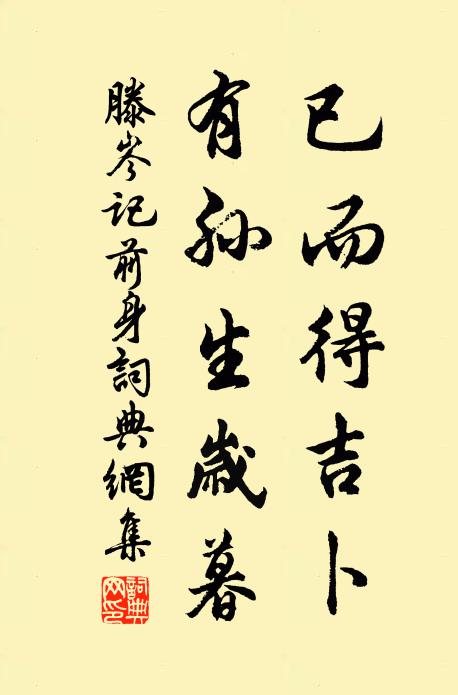 已而得吉卜
有孙生歲暮
滕岑記前身詞典網集
詞典网印